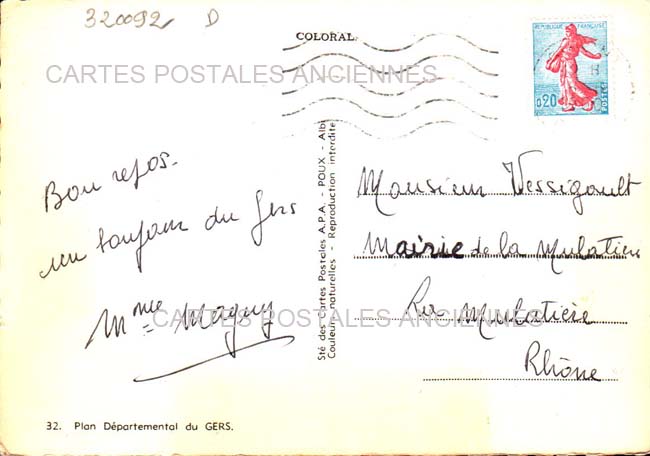 320092 D
COLORAL
REPUBLIQUE FRANÇAISE
0,20
POSTES
CARTES POSTALES ANCIENNES
Bon repos.
un bonjour du Gers
Mme Maguy
Sté des Cartes Postales A.P.A. - POUX - Albi
Couleurs naturelles - Reproduction interdite
Monsieur Vessigault
Mairie de la Mulatière
La Mulatière
Rhône
CARTES POSTALES ANCIENNES
32. Plan Départemental du GERS.